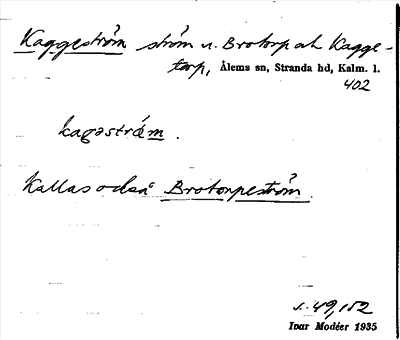 Kaggeström ström n. Brotorp och Kagge-
torp, Ålems sn, Stranda hd, Kalm. l.
402
kagəström.
Kallas också Brotorpeström.
s. 49, 152
Ivar Modéer 1935